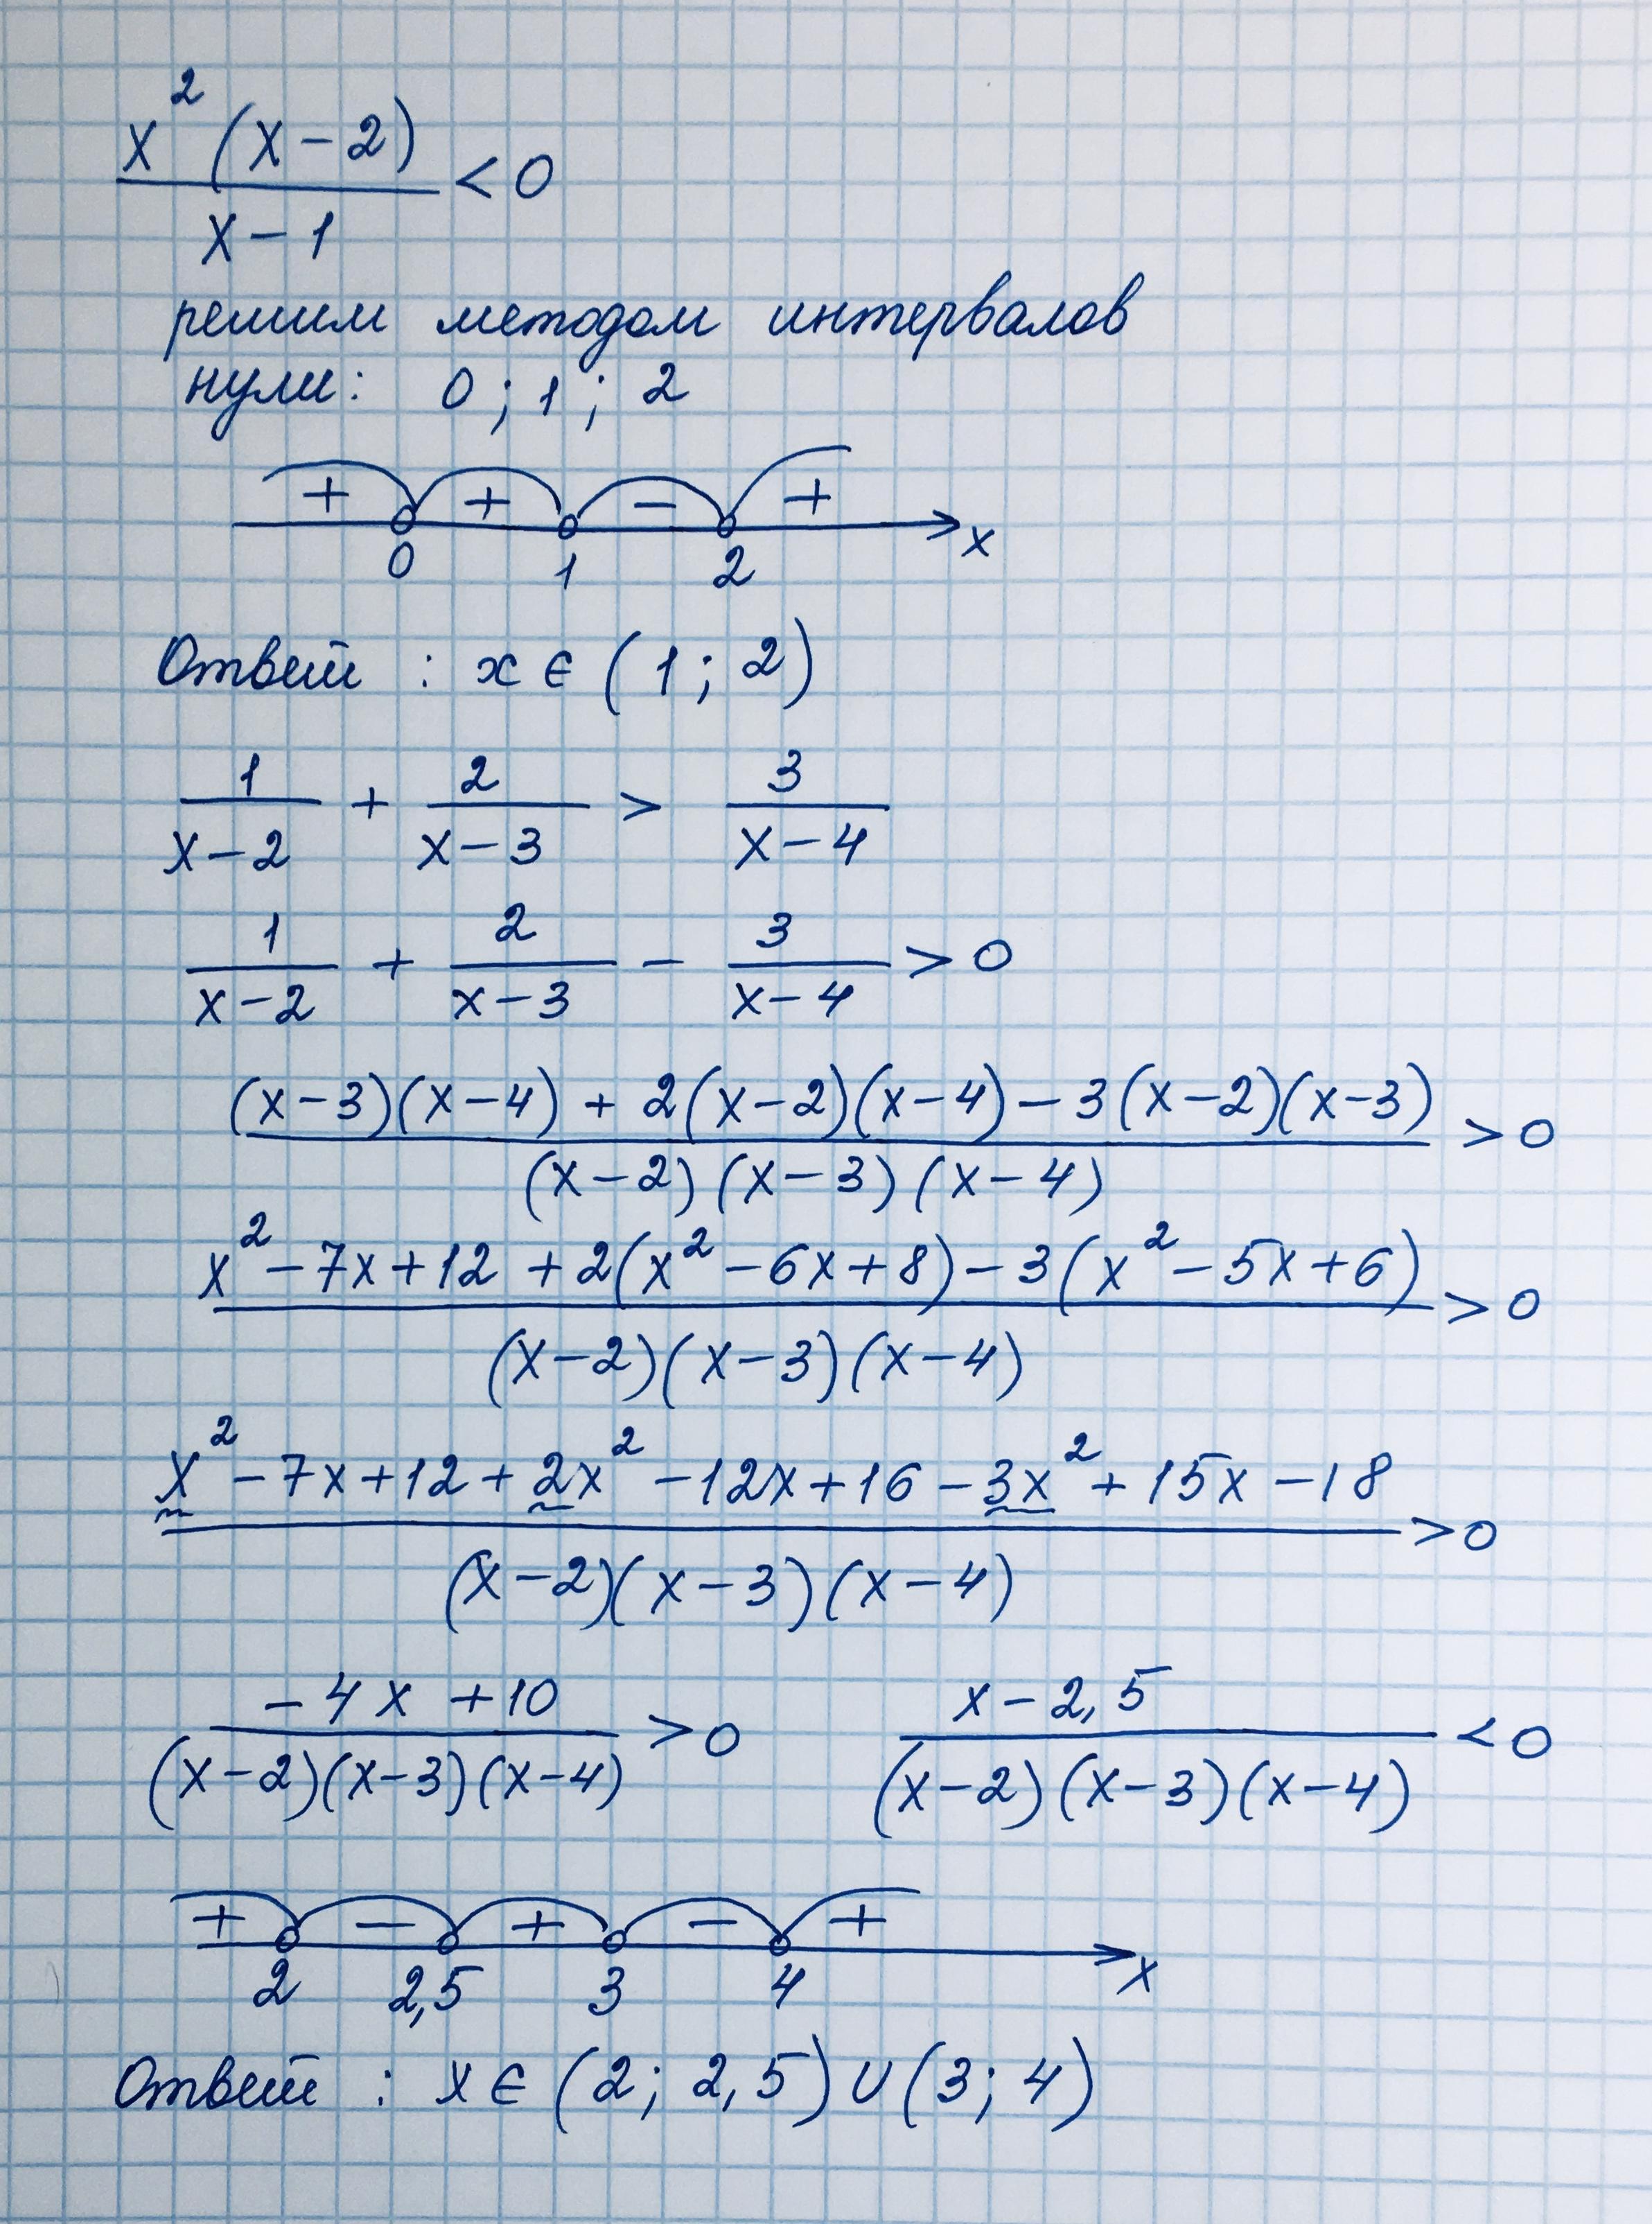 x²(x-2)/(x-1) < 0
решим методом интервалов
нули: 0; 1; 2
+ + - +
0 1 2 x
Ответ: x ∈ (1; 2)
1/(x-2) + 2/(x-3) > 3/(x-4)
1/(x-2) + 2/(x-3) - 3/(x-4) > 0
((x-3)(x-4) + 2(x-2)(x-4) - 3(x-2)(x-3))/((x-2)(x-3)(x-4)) > 0
(x² - 7x + 12 + 2(x² - 6x + 8) - 3(x² - 5x + 6))/((x-2)(x-3)(x-4)) > 0
(x² - 7x + 12 + 2x² - 12x + 16 - 3x² + 15x - 18)/((x-2)(x-3)(x-4)) > 0
(-4x + 10)/((x-2)(x-3)(x-4)) > 0 (x - 2,5)/((x-2)(x-3)(x-4)) < 0
+ - + - +
2 2,5 3 4 x
Ответ: x ∈ (2; 2,5) ∪ (3; 4)